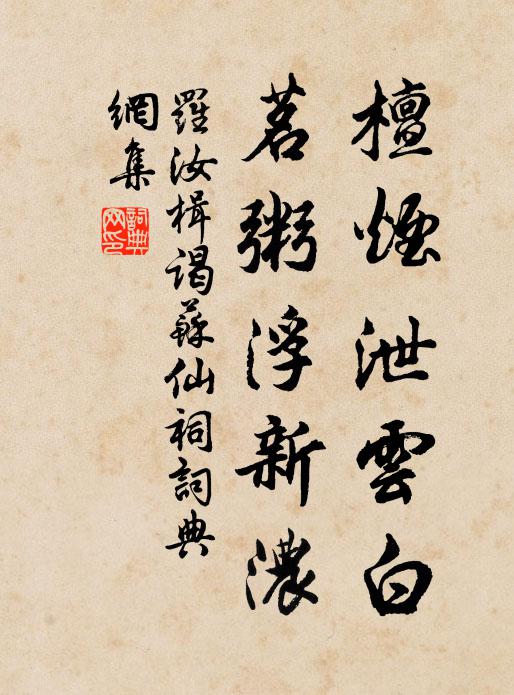 檀煙泄雲白
茗粥浮新濃
羅汝楫謁蘇仙祠詞典
網集
詞典網印